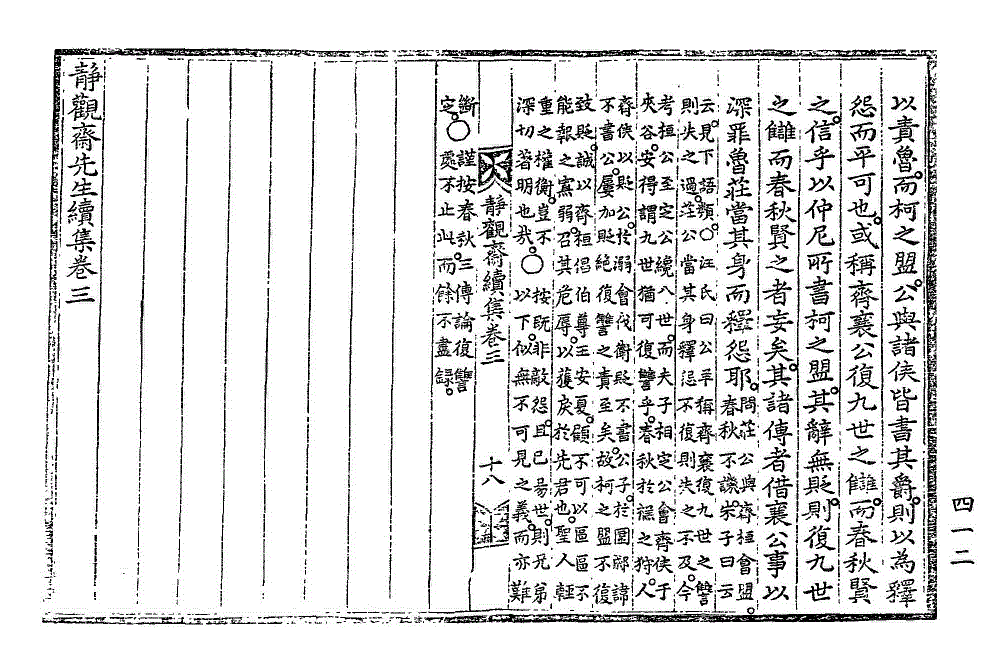 以責魯。而柯之盟。公與諸侯皆書其爵。則以為釋
怨而平可也。或稱齊襄公復九世之讎。而春秋賢
之。信乎。以仲尼所書柯之盟。其辭無貶。則復九世
之讎而春秋賢之者妄矣。其諸傳者借襄公事以
深罪魯莊當其身而釋怨耶。
問莊公與齊桓會盟。
春秋不譏。朱子曰云
云。見下語類。○汪氏曰公羊稱齊襄復九世之讐。
則失之過。莊公當其身釋怨不復則失之不及。今
考桓公至定公纔八世。而夫子相定公會齊侯于
夾谷。安得謂九世猶可復讐乎。春秋於禚之狩人
齊侯以貶公。於溺會伐衛貶不書公子。於圍郕諱
不書公。屢加貶絕復讐之責至矣。故柯之盟不復
致貶。誠以齊桓倡伯尊王安夏。顧不可以區區不
能報之寡弱。召其危辱。以獲戾於先君也。聖人輕
重之權衡。豈不
深切著明也哉。○
按旣非敵怨。且已易世。則兄弟
以下似無不可見之義。而亦難
靜觀齋續集卷三 十八
斷
定。○
謹按春秋三傳論復讐
處不止此。而餘不盡錄。
靜觀齋先生續集卷三
四一二